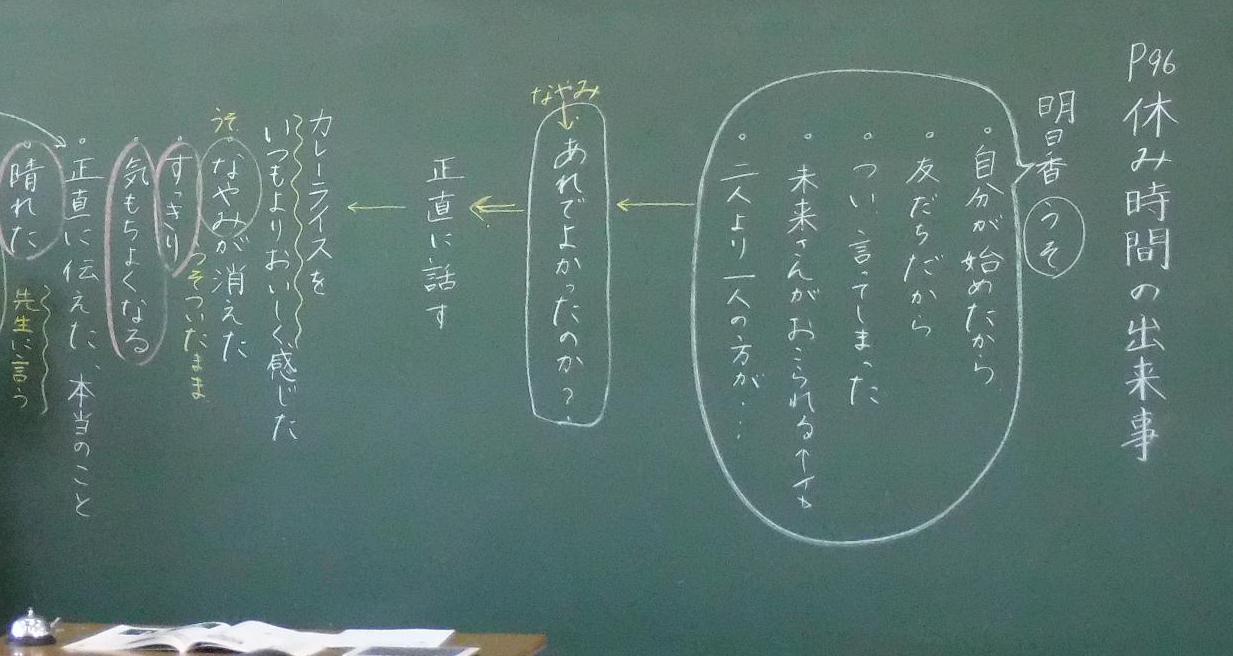 P96 休み時間の出来事
明日香 うそ
。自分が始めたから
。友だちだから
。つい言ってしまった
。未来さんがおこられる
。二人より一人の方が・・・
なやみ
あれでよかったのか?
正直に話す
カレーライスを
いつもよりおいしく感じた
うそ
。なやみが消えた
。すっきり うそついたまま
。気もちよくなる
。正直に伝えた、本当のこと
。晴れた 先生に言う